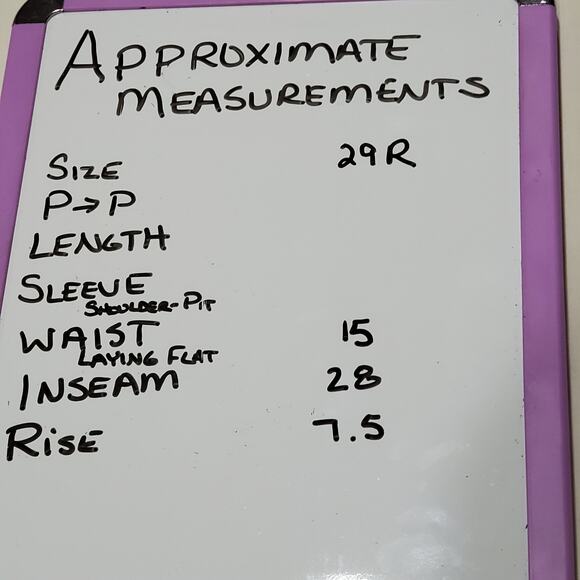 APPROXIMATE
MEASUREMENTS
SIZE 29R
P→P
LENGTH
SLEEVE
SHOULDER-PIT
WAIST 15
LAYING FLAT
INSEAM 28
RISE 7.5